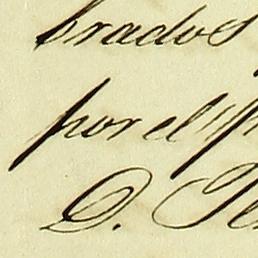 brados
por el
D.